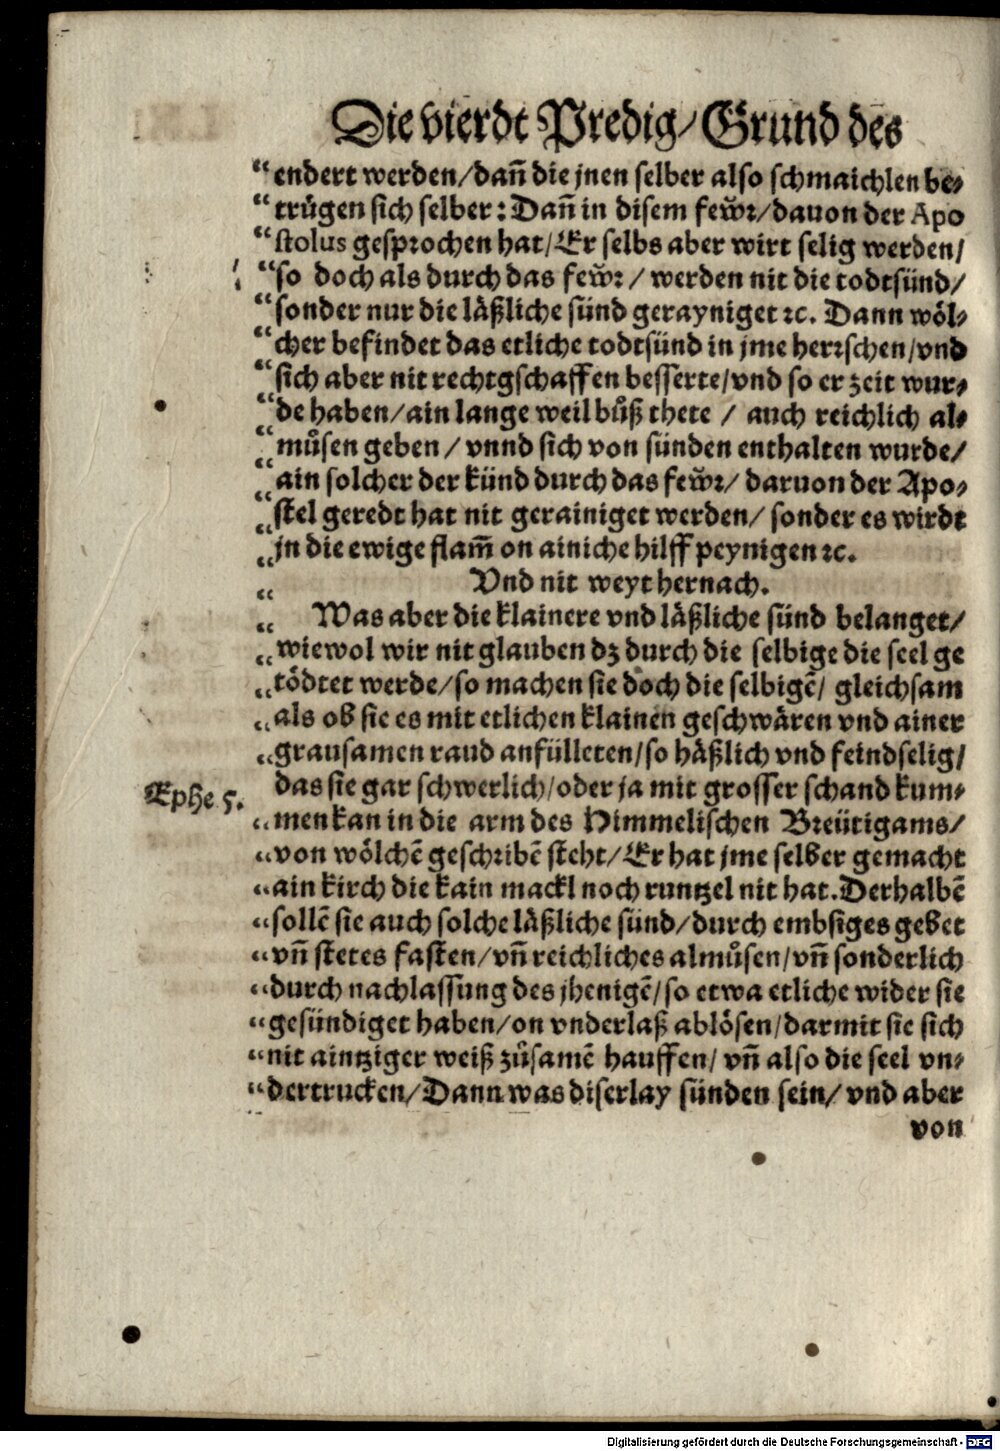 Die vierdt Predig/ Grund des
“ endert werden/ dañ die jnen selber also schmaichlen be-
“ trügen sich selber: Dañ in disem fewr/ dauon der Apo
“ stolus gesprochen hat/ Er selbs aber wirt selig werden/
“ so doch als durch das fewr/ werden nit die todtsünd/
“ sonder nur die läßliche sünd gerayniget ꝛc. Dann wöl-
“ cher befindet das etliche todtsünd in jme herrschen/ vnd
“ sich aber nit rechtgschaffen besserte/ vnd so er zeit wur-
“ de haben/ ain lange weil bůß thete / auch reichlich al-
“ můsen geben / vnnd sich von sünden enthalten wurde/
“ ain solcher der künd durch das fewr/ daruon der Apo-
“ stel geredt hat nit gerainiget werden/ sonder es wirdt
“ jn die ewige flam̃ on ainiche hilff peynigen ꝛc.
“ Vnd nit weyt hernach.
“ Was aber die klainere vnd läßliche sünd belanget/
“ wiewol wir nit glauben dz durch die selbige die seel ge
“ tödtet werde/ so machen sie doch die selbigẽ/ gleichsam
“ als ob sie es mit etlichen klainen geschwären vnd ainer
“ grausamen raud anfülleten/ so häßlich vnd feindselig/
das sie gar schwerlich/ oder ja mit grosser schand kum-
Ephe 5.
“ men kan in die arm des Himmelischen Breütigams/
“ von wölchẽ geschribẽ steht/ Er hat jme selber gemacht
“ ain kirch die kain mackl noch runtzel nit hat. Derhalbẽ
“ sollẽ sie auch solche läßliche sünd/ durch embsiges gebet
“ vñ stetes fasten/ vñ reichliches almůsen/ vñ sonderlich
“ durch nachlassung des jhenigẽ/ so etwa etliche wider sie
“ gesündiget haben/ on vnderlaß ablösen/ darmit sie sich
“ nit aintziger weiß zůsamẽ hauffen/ vñ also die seel vn-
“ dertrucken/ Dann was diserlay sünden sein/ vnd aber
von
Digitalisierung gefördert durch die Deutsche Forschungsgemeinschaft - DFG